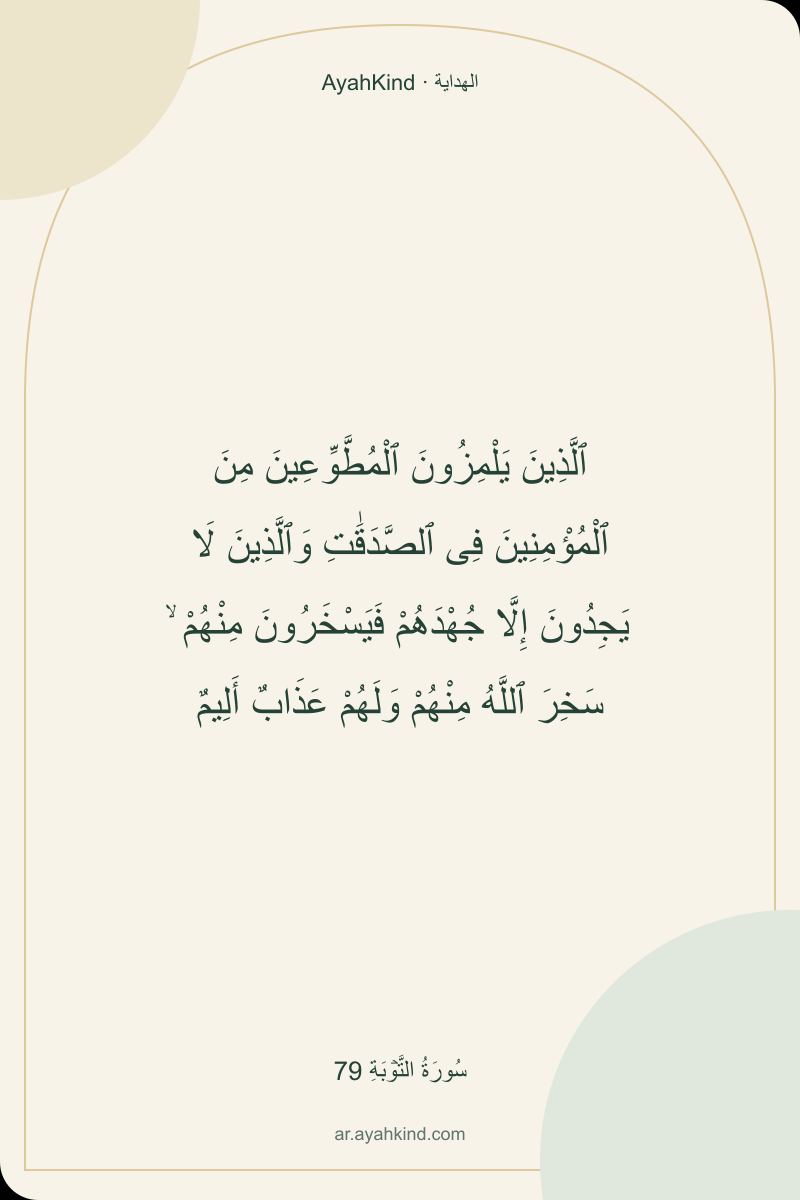 AyahKind · الهداية
ٱلَّذِينَ يَلْمِزُونَ ٱلْمُطَّوِّعِينَ مِنَ
ٱلْمُؤْمِنِينَ فِى ٱلصَّدَقَٰتِ وَٱلَّذِينَ لَا
يَجِدُونَ إِلَّا جُهْدَهُمْ فَيَسْخَرُونَ مِنْهُمْ ۙ
سَخِرَ ٱللَّهُ مِنْهُمْ وَلَهُمْ عَذَابٌ أَلِيمٌ
سُورَةُ التَّوۡبَةِ 79
ar.ayahkind.com